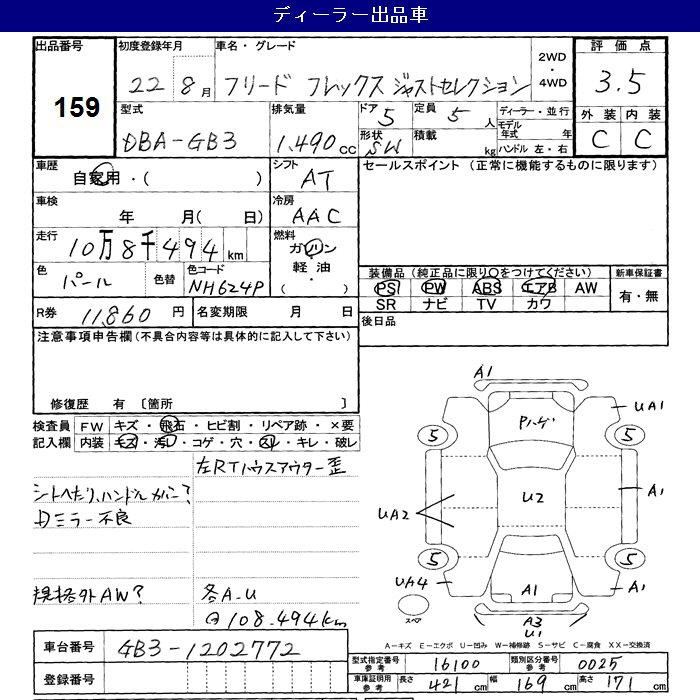 ディーラー出品車
出品番号
159
初度登録年月
22年 8月
車名・グレード
フリード フレックス ジャストセレクション
2WD
・
4WD
評価点
3.5
外装 内装
C C
型式
DBA-GB3
排気量
1.490cc
ドア
5
形状
SW
定員
5人
積載
kg
ディーラー・並行
モデル年式 年
ハンドル 左・右
車歴
自家用・( )
シフト
AT
車検
年 月( 日)
冷房
AAC
走行
10万8千494km
燃料
ガソリン
軽油・
( )
色
パール
色替
色コード
NH624P
R券
11.860円
名変期限 月 日
セールスポイント(正常に機能するものに限ります)
装備品(純正品に限り○をつけてください)
PS PW ABS エアB AW
SR ナビ TV カワ
新車保証書
有・無
後日品
注意事項申告欄(不具合内容等は具体的に記入して下さい)
修復歴 有 〔箇所 〕
検査員記入欄
FW キズ・飛石・ヒビ割・リペア跡・×要
内装 キズ・汚レ・コゲ・穴・スレ・キレ・破レ
左RTハウスアウター歪
シートへたり、ハンドルカバー?
Dミラー不良
規格外AW?
各A-U
@108.494km
A1
UA1
Pハゲ
5
5
U2
A1
UA2
5
5
UA4
A1
A1
スペア
A3
U1
A-キズ E-エクボ U-凹み W-補修跡 S-サビ C-腐食 XX-交換済
車台番号
GB3-1202772
登録番号
型式指定番号参考
16100
類別区分番号参考
0025
車庫証明用参考
長さ 421cm 幅 169cm 高さ 171cm